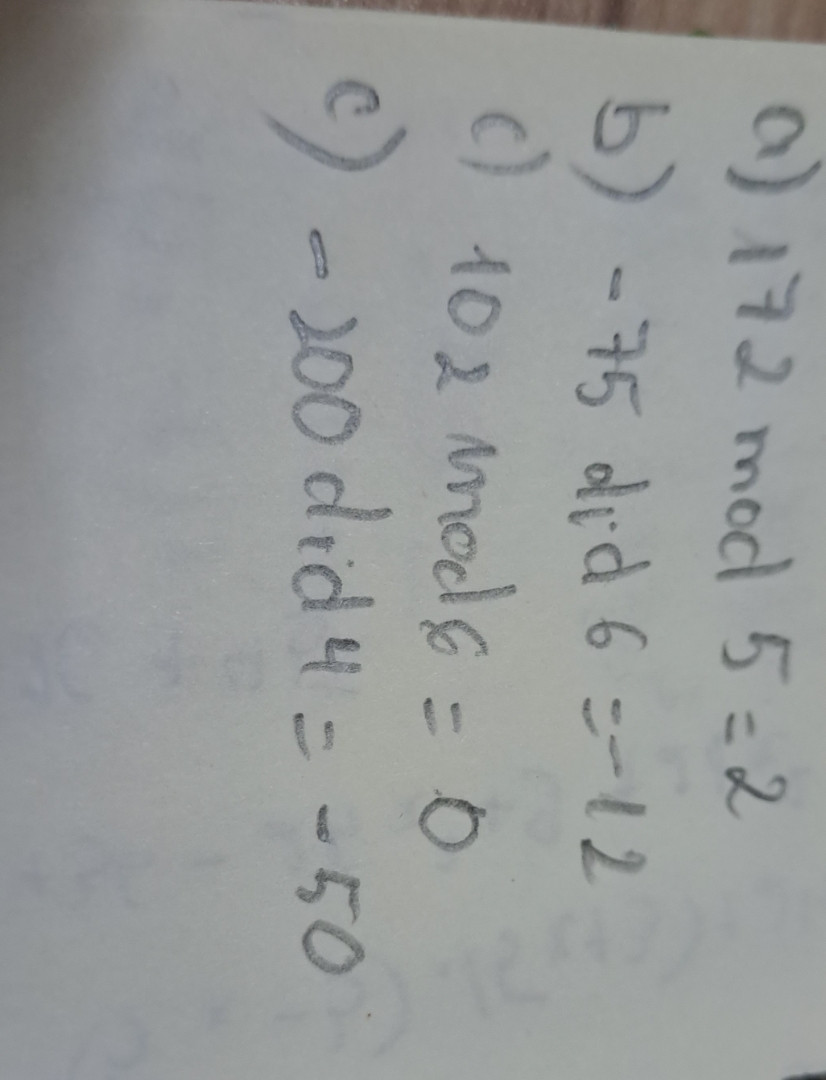 a) 172 mod 5 = 2
b) - 75 did 6 = -12
c) 102 mod 6 = 0
c) - 200 did 4 = - 50